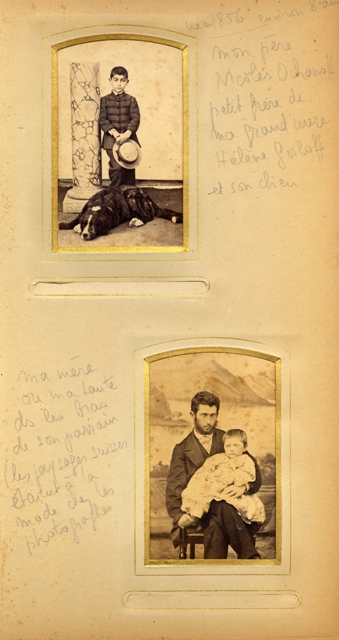 né en 1856 environ 8 ans
mon père
Nicolas
petit frère de
ma grand mère
Hélène
et son chien
ma mère
ou ma tante
ds les bras
de son parrain
(les paysages suisses
étaient à la
mode chez les
photographes